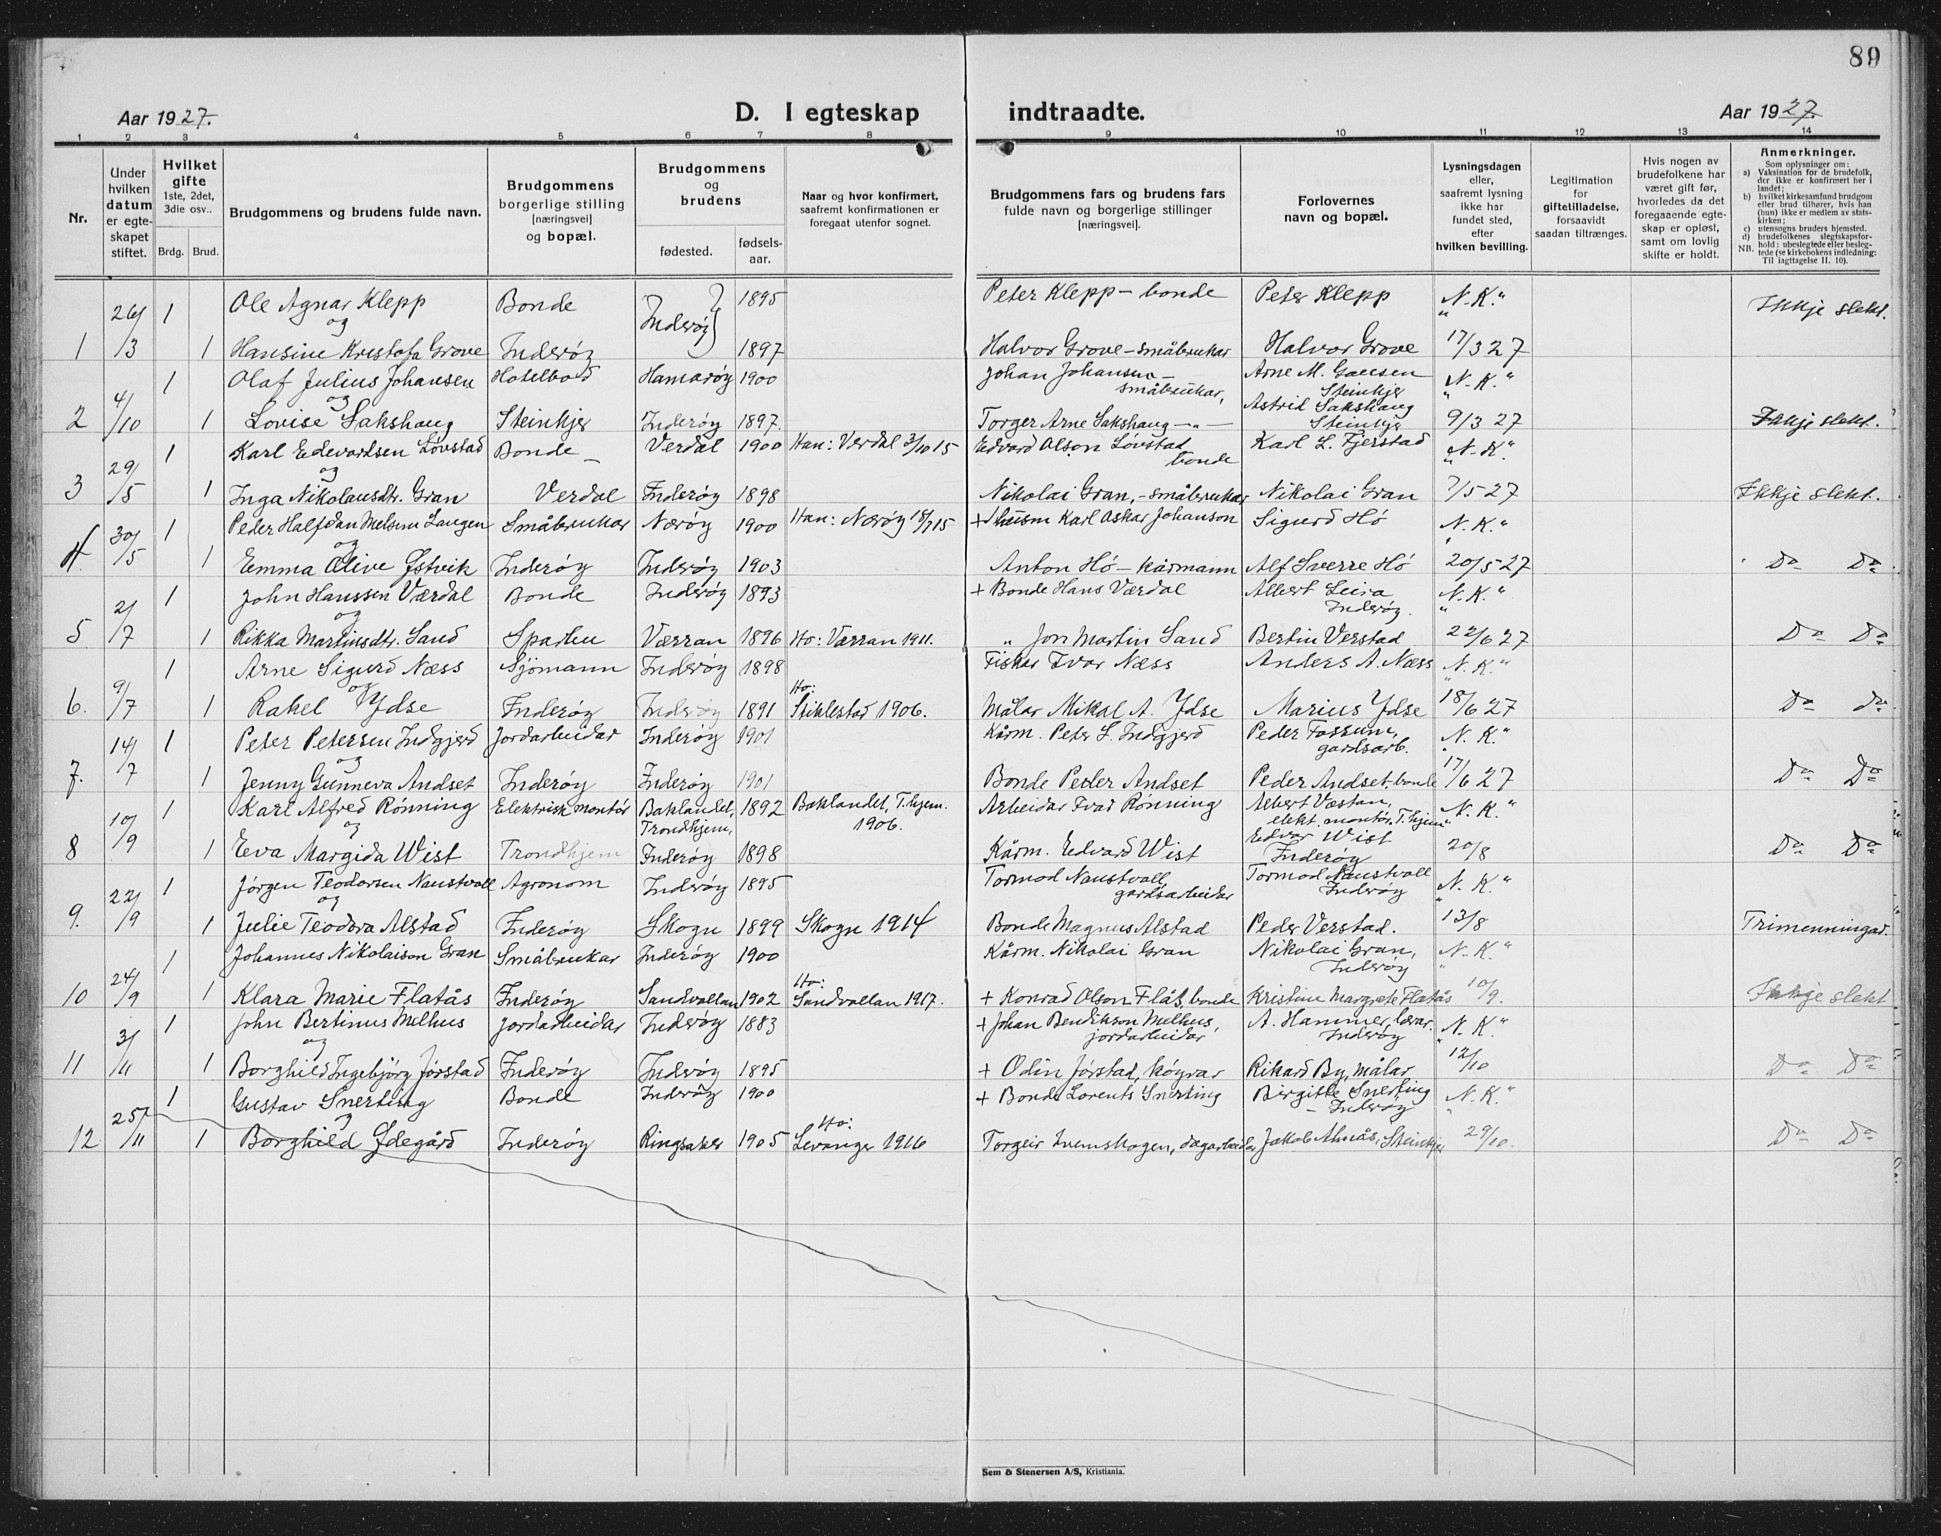 89
Aar 1927. D. I egteskap indtraadte. Aar 1927.
1 2 3 4 5 6 7 8 9 10 11 12 13 14
Nr.
Under hvilken datum er egteskapet stiftet.
Hvilket gifte 1ste, 2det, 3die osv..
Brdg. Brud.
Brudgommens og brudens fulde navn.
Brudgommens borgerlige stilling [næringsvei] og bopæl.
Brudgommens og brudens
fødested.
fødselsaar.
Naar og hvor konfirmert, saafremt konfirmationen er foregaat utenfor sognet.
Brudgommens fars og brudens fars fulde navn og borgerlige stillinger [næringsvei].
Forlovernes navn og bopæl.
Lysningsdagen eller, saafremt lysning ikke har fundet sted, efter hvilken bevilling.
Legitimation for giftetilladelse, forsaavidt saadan tiltrænges.
Hvis nogen av brudefolkene har været gift før, hvorledes da det foregaaende egteskap er opløst, samt om lovlig skifte er holdt.
Anmerkninger.
Som oplysninger om:
a) Vaksination for de brudefolk, der ikke er konfirmert her i landet;
b) hvilket kirkesamfund brudgom eller brud tilhører, hvis han (hun) ikke er medlem av statskirken;
c) utensogns bruders hjemsted.
d) brudefolkenes slegtskapsforhold: ubeslegtede eller beslegtede (se kirkebokens indledning:
NB. Til iagttagelse II. 10).
26/ 1 Ole Agnar Klepp Bonde 1895 Peter Klepp – bonde Peter Klepp N.K." Ikkje slekt.
og Inderøy
1 /3 1 Hansine Kristofa Grove Inderøy 1897 Halvor Grove – småbrukar Halvor Grove 17/3 27
1 Olaf Julius Johansen Hotelbod Hamarøy 1900 Johan Johansen – småbrukar, Arne M. Gausen Steinkjer N.K."
og
2 4/10 1 Lovise Sakshaug Steinkjer Inderøy 1897. Torger Arne Sakshaug –"– Astrid Sakshaug Steinkjer 9/3 27 Ikkje slekt.
1 Karl Edvardsen Løvstad Bonde – Verdal 1900 Han: Verdal 3/10 15 Edvard Olson Løvstad bonde Karl L. Fjerstad N.K."
og
3 29/5 1 Inga Nikolausdtr. Gran Verdal Inderøy 1898 Nikolai Gran, – småbrukar Nikolai Gran 7/5 27 Ikkje slekt.
1 Peder Halfdan Melsum Langen Småbrukar Nærøy 1900 Han: Nærøy 18/7 15 + Husm Karl Oskar Johanson Sigurd Hó N.K."
og
4. 30/5 1 Emma Olive Østvik Inderøy Inderøy 1903 Anton Hó – kårmann Alf Sverre Hó 20/5 27 Do Do
1 John Hanssen Værdal Bonde Inderøy 1893 + Bonde Hans Værdal Albert Leira Inderøy. N.K."
og
5 2/7 1 Rikka Martinusdtr. Sand Sparbu Værran 1896 Ho: Værran 1911. " Jon Martin Sand Bertin Verstad 22/6 27 Do Do
1 Arne Sigurd Næss Sjømann Inderøy 1898 Fiskar Ivar Næss Anders A. Næss N.K."
og
6. 9/7 1 Rakel Ydse Inderøy Inderøy 1891 Ho: Stiklestad 1906. Målar Mikal A. Ydse Marius Ydse 18/6 27 Do Do
1 Peter Petersen Indgjerd Jordarbeidar Inderøy 1901 Kårm. Peter L. Indgjerd Peder Fossum, gardsarb. N.K."
og
7. 14/7 1 Jenny Gunneva Andset Inderøy Inderøy 1901 Bonde Peder Andset Peder Andset, bonde 17/6 27 Do Do
1 Karl Alfred Rønning Elektrisk montør Baklandet, Trondhjem, 1892 Baklandet, T.hjem. 1906. Arbeidar Ivar Rønning Albert Væstan, elekt. montör. T.hjem N.K."
og
8 10/9 1 Eva Margida Wist Trondhjem Inderøy 1898 Kårm. Edvard Wist Edvar Wist Inderøy 20/8 Do Do
1 Jørgen Teodorsen Naustvoll Agronom Inderøy 1895 Tormod Naustvoll, gardsarbeidar Tormod Naustvoll Inderøy N.K."
og
9. 22/9 1 Julie Teodora Alstad Inderøy Skogn 1899 Skogn 1914 Bonde Magnus Alstad Peder Verstad. 13/8 Trimenningar.
1 Johannes Nikolaison Gran Småbrukar Inderøy 1900 Kårm. Nikolai Gran Nikolai Gran, Inderøy N.K."
10 24/9 1 Klara Marie Flatås Inderøy Sandvollan 1902 Ho: Sandvollan 1917. + Konrad Olson Flåts, bonde Kristine Margrete Flatås 10/9. Ikkje slekt
1 John Bertinus Melhus Jordarbeidar Inderøy 1883 + Johan Bendikson Melhus, jordarbeidar A. Hammer, lærar. Inderøy N.K."
og
11 3/11 1 Borghild Ingebjörg Jørstad Inderøy Inderøy 1895 + Odin Jørstad, køyrar Rikard By, målar 12/10 Do Do
1 Gustav Snerting Bonde Inderøy 1900 + Bonde Lorents Snerting Birgitte Snerting – Inderøy N.K."
og
12 25/11 1 Borghild Ydegård Inderøy Ringsaker 1905 Ho: Levanger 1916 Torgeir Svenskogen, dagarbeidar Jakob Almås, Steinkjer 29/10. Do Do
Sem & Stenersen A/S, Kristiania.